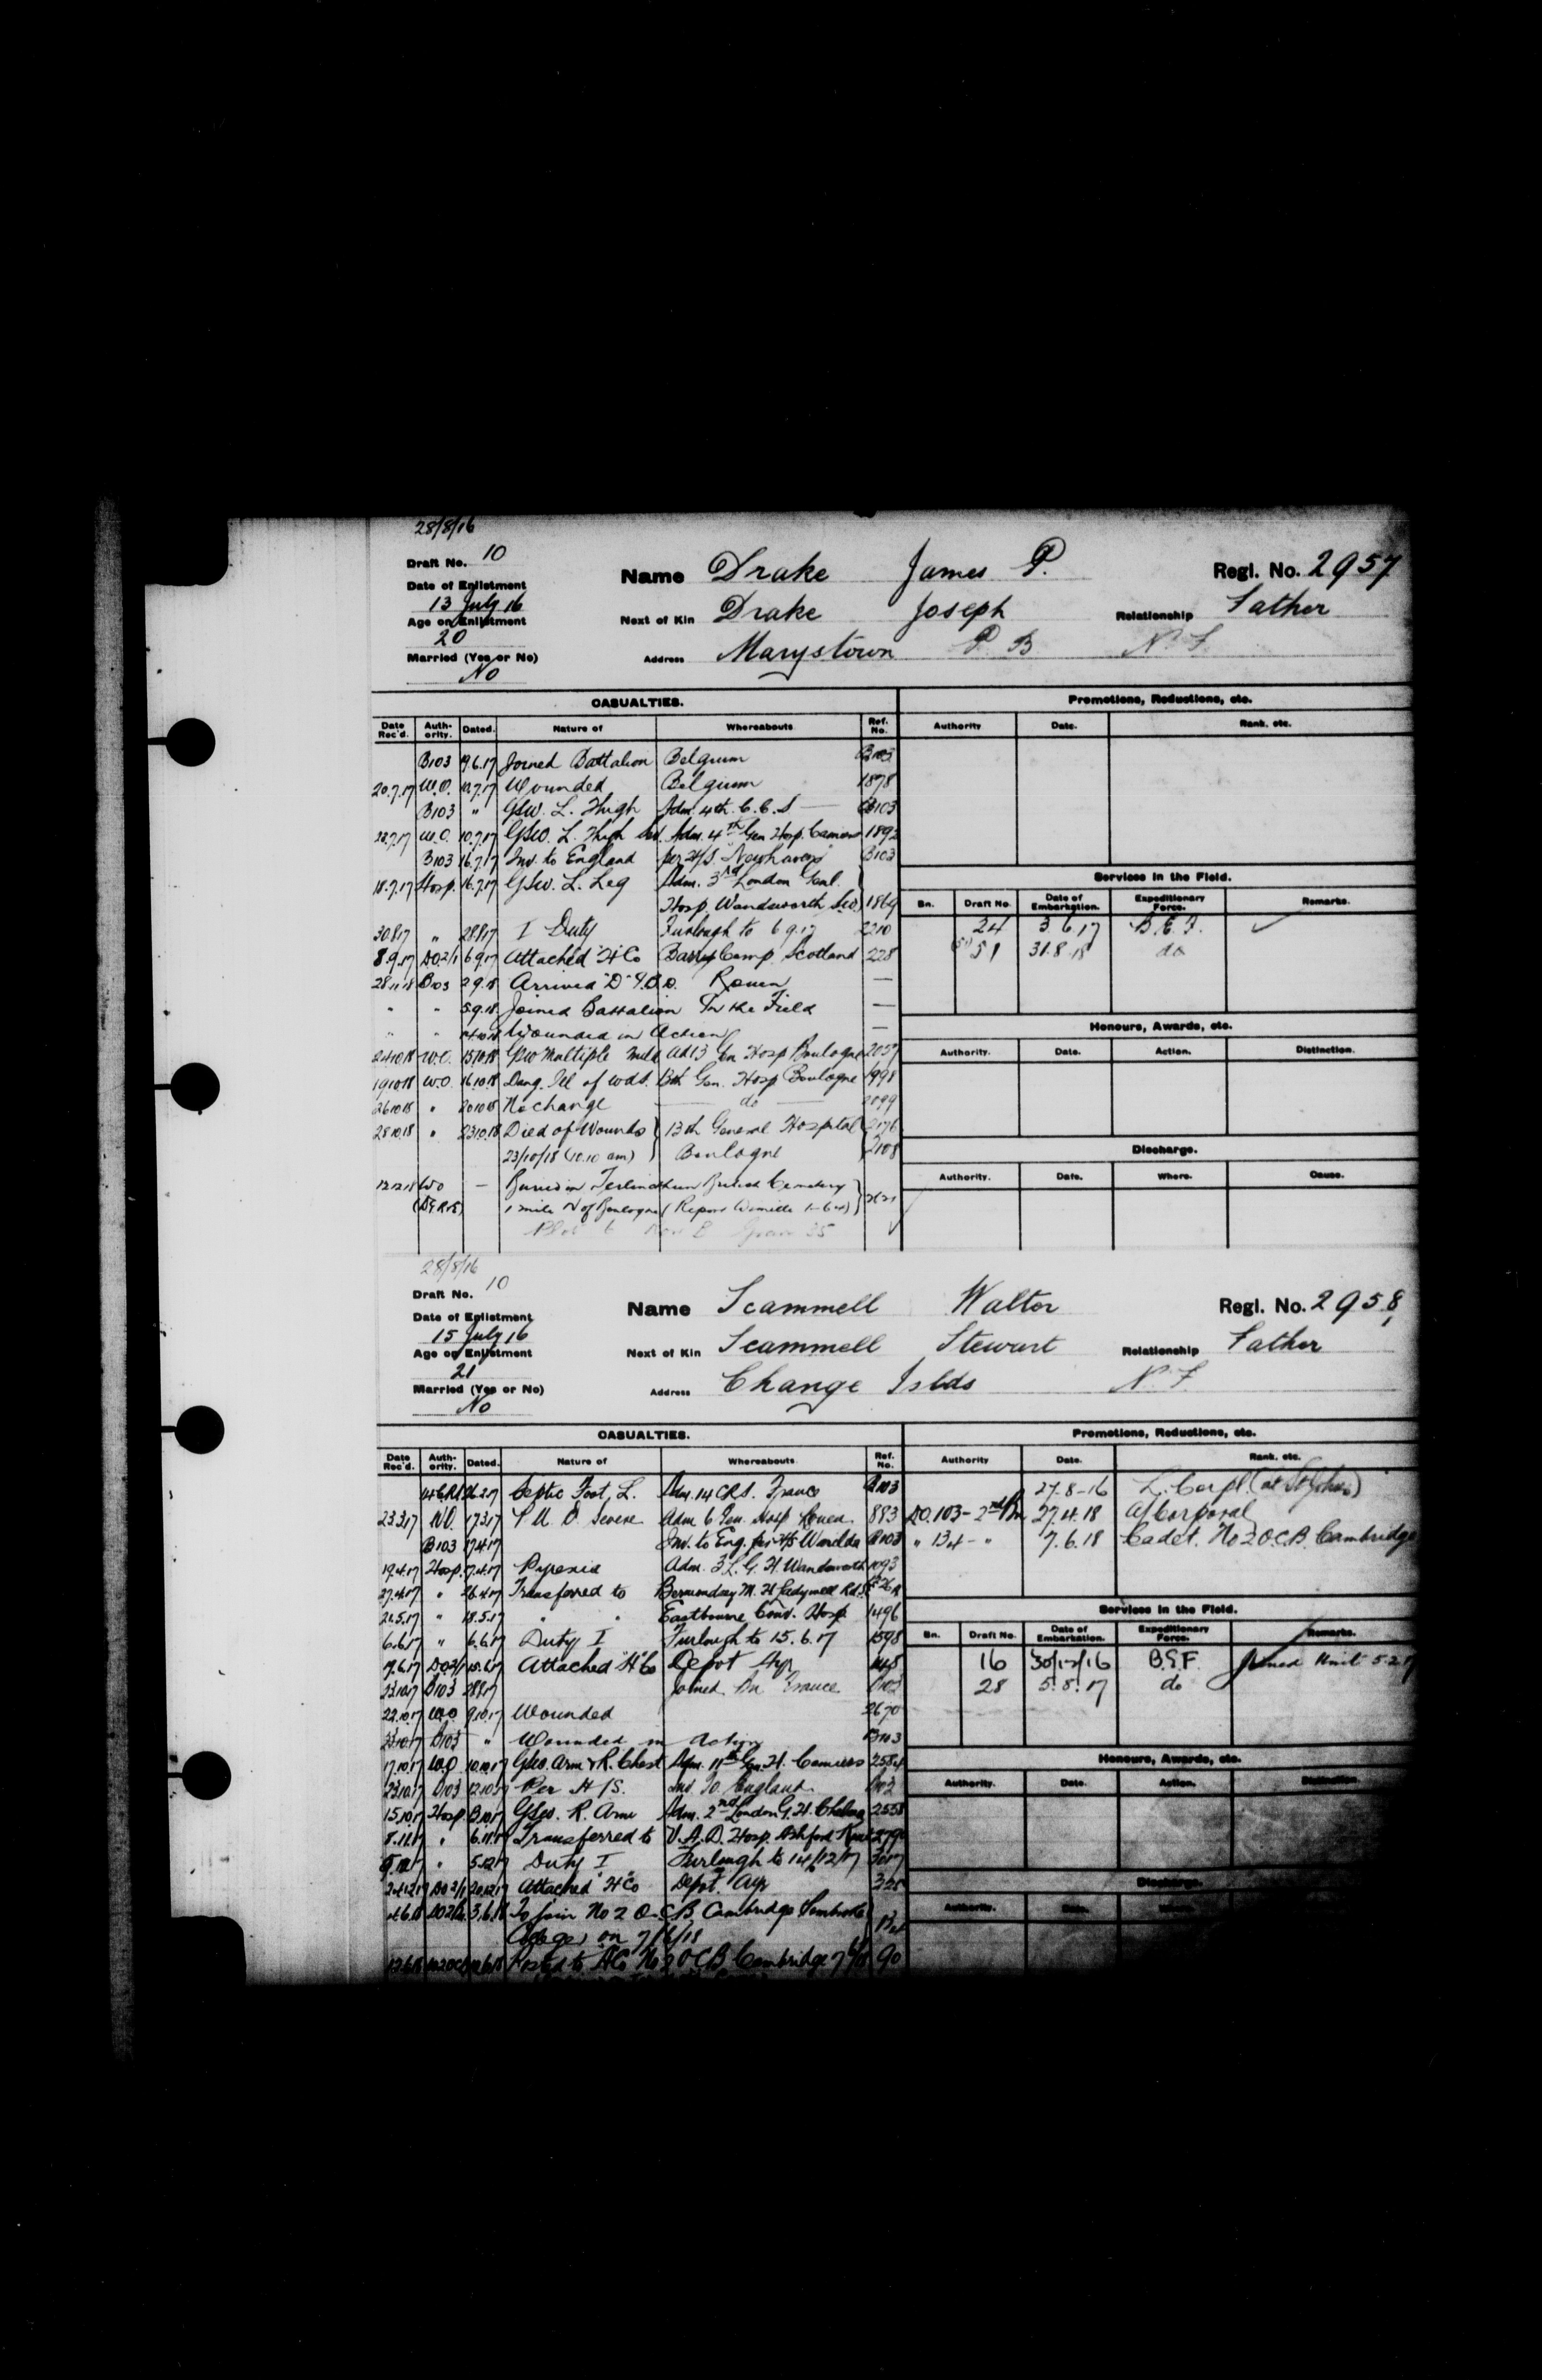 28/8/16
Draft No. 10
Name Drake James P. Regl. No. 2957
Date of Enlistment
13 July 16
Next of Kin Drake Joseph Relationship Father
Age on Enlistment
20
Address Marystown P B N. F.
Married (Yes or No)
No
CASUALTIES. Promotions, Reductions, etc.
Date Rec'd. Auth-ority. Dated. Nature of Whereabouts Ref. No. Authority Date. Rank, etc.
B103 9.6.17 Joined Battalion Belgium B103
20.7.17 W.O. 10.7.17 Wounded Belgium 1878
B103 " GSW. L. Thigh Adm. 4th. C.C.S B103
W.O. 10.7.17 GSW. L. Thigh Adm. 4th Gen Hosp. Camiers 1892
B103 16.7.17 Inv. to England per H/S. "Newhaven" B103
18.7.17 Hosp. 16.7.17 GSW. L. Leg Adm. 3rd London Genl.
Hosp. Wandsworth 1869
Services in the Field.
Bn. Draft No. Date of Embarkation. Expeditionary Force. Remarks.
24 3 6 17 B.E.F. ✓
51 31.8.18 do
30.8.17 " 28.8.17 I Duty Furlough to 6 9.17 2210
8.9.17 DO2/1 6.9.17 Attached "H" Co Barry Camp. Scotland 228
28.11.18 B103 2.9.18 Arrived "D" Rouen —
" " 5.9.18 Joined Battalion In the Field —
" " Wounded in Action —
Honours, Awards, etc.
Authority. Date. Action. Distinction.
24.10.18 W.O. 15.10.18 GSW Multiple Mild Ad 13 Gen Hosp Boulogne 2057
19.10.18 W.O. 16.10.18 Dang. Ill of wds. 13th Gen. Hosp Boulogne 1998
26.10.18 " 20.10.18 No change do 2099
28.10.18 " 23.10.18 Died of Wounds 13th General Hospital 2176
23/10/18 (10.10 am) Boulogne 2108
Discharge.
Authority. Date. Where. Cause.
12.12.18 WO — Buried in Terlincthun British Cemetery
(DGR&E) 1 mile N of Boulogne
Row E Grave 35
28/8/16
Draft No. 10
Name Scammell Walter Regl. No. 2958
Date of Enlistment
15 July 16
Next of Kin Scammell Stewart Relationship Father
Age on Enlistment
21
Address Change Islds N. F.
Married (Yes or No)
No
CASUALTIES. Promotions, Reductions, etc.
Date Rec'd. Auth-ority. Dated. Nature of Whereabouts Ref. No. Authority Date. Rank, etc.
26.2.17 Septic Foot, L. Adm. 14 CRS. France B103
27.8-16 L. Corpl. (at St Johns)
23.3.17 W.O. 17.3.17 P.U.O. Severe Adm 6 Gen. Hosp Rouen 883
DO.103-2nd Bn 27.4.18 A/Corporal
B103 7.4.17 Inv. to Eng. per H/S Warilda B103
" 134 - " 7.6.18 Cadet. No 2 O.C.B. Cambridge
19.4.17 Hosp. 7.4.17 Pyrexia Adm. 3 L. G. H. Wandsworth 1093
27.4.17 " 26.4.17 Transferred to Bermondsey M. H. Ladywell Rd.
21.5.17 " 18.5.17 " " Eastbourne Conv. Hosp. 1496
6.6.17 " 6.6.17 Duty I Furlough to 15.6.17 1598
Services in the Field.
Bn. Draft No. Date of Embarkation. Expeditionary Force. Remarks.
16 30/12/16 B.E.F. Joined Unit 5.2.17
28 5.8.17 do
DO2/1 15.6.17 Attached "H" Co Depot Ayr
23.10.17 B103 Joined Bn France B103
22.10.17 W.O 9.10.17 Wounded 2670
23.10.17 B103 " Wounded in Action B103
Honours, Awards, etc.
Authority. Date. Action. Distinction.
17.10.17 W.O 10.10.17 GSW. Arm & R. Chest Adm. 11th Gen. H. Camiers 2584
23.10.17 B103 12.10.17 Per H/S. Inv. To England B103
15.10.17 Hosp. 13.10.17 GSW. R. Arm Adm. 2nd London G. H. Chelsea 2558
8.11.17 " 6.11.17 Transferred to V.A.D. Hosp. Ashford Kent
" 5.12.17 Duty I Furlough to 14/12/17
Discharge.
Authority. Date. Where.
24.12.17 DO 2/1 20.12.17 Attached "H" Co Depot. Ayr
3.6.18 To join No 2 O.C.B. Cambridge Pembroke
College) on 7/6/18
Posted to A Co No 2 OCB Cambridge 90